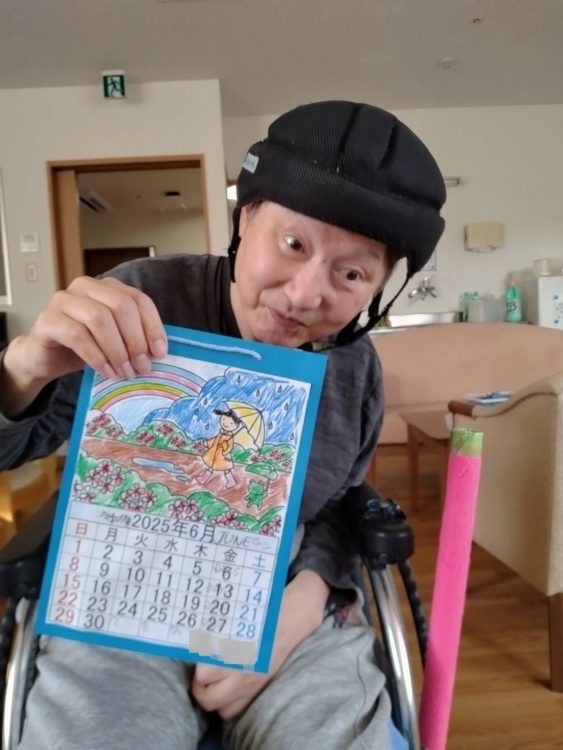 2025年6月 JUNE
日 月 火 水 木 金 土
1 2 3 4 5 6 7
8 9 10 11 12 13 14
15 16 17 18 19 20 21
22 23 24 25 26 27 28
29 30